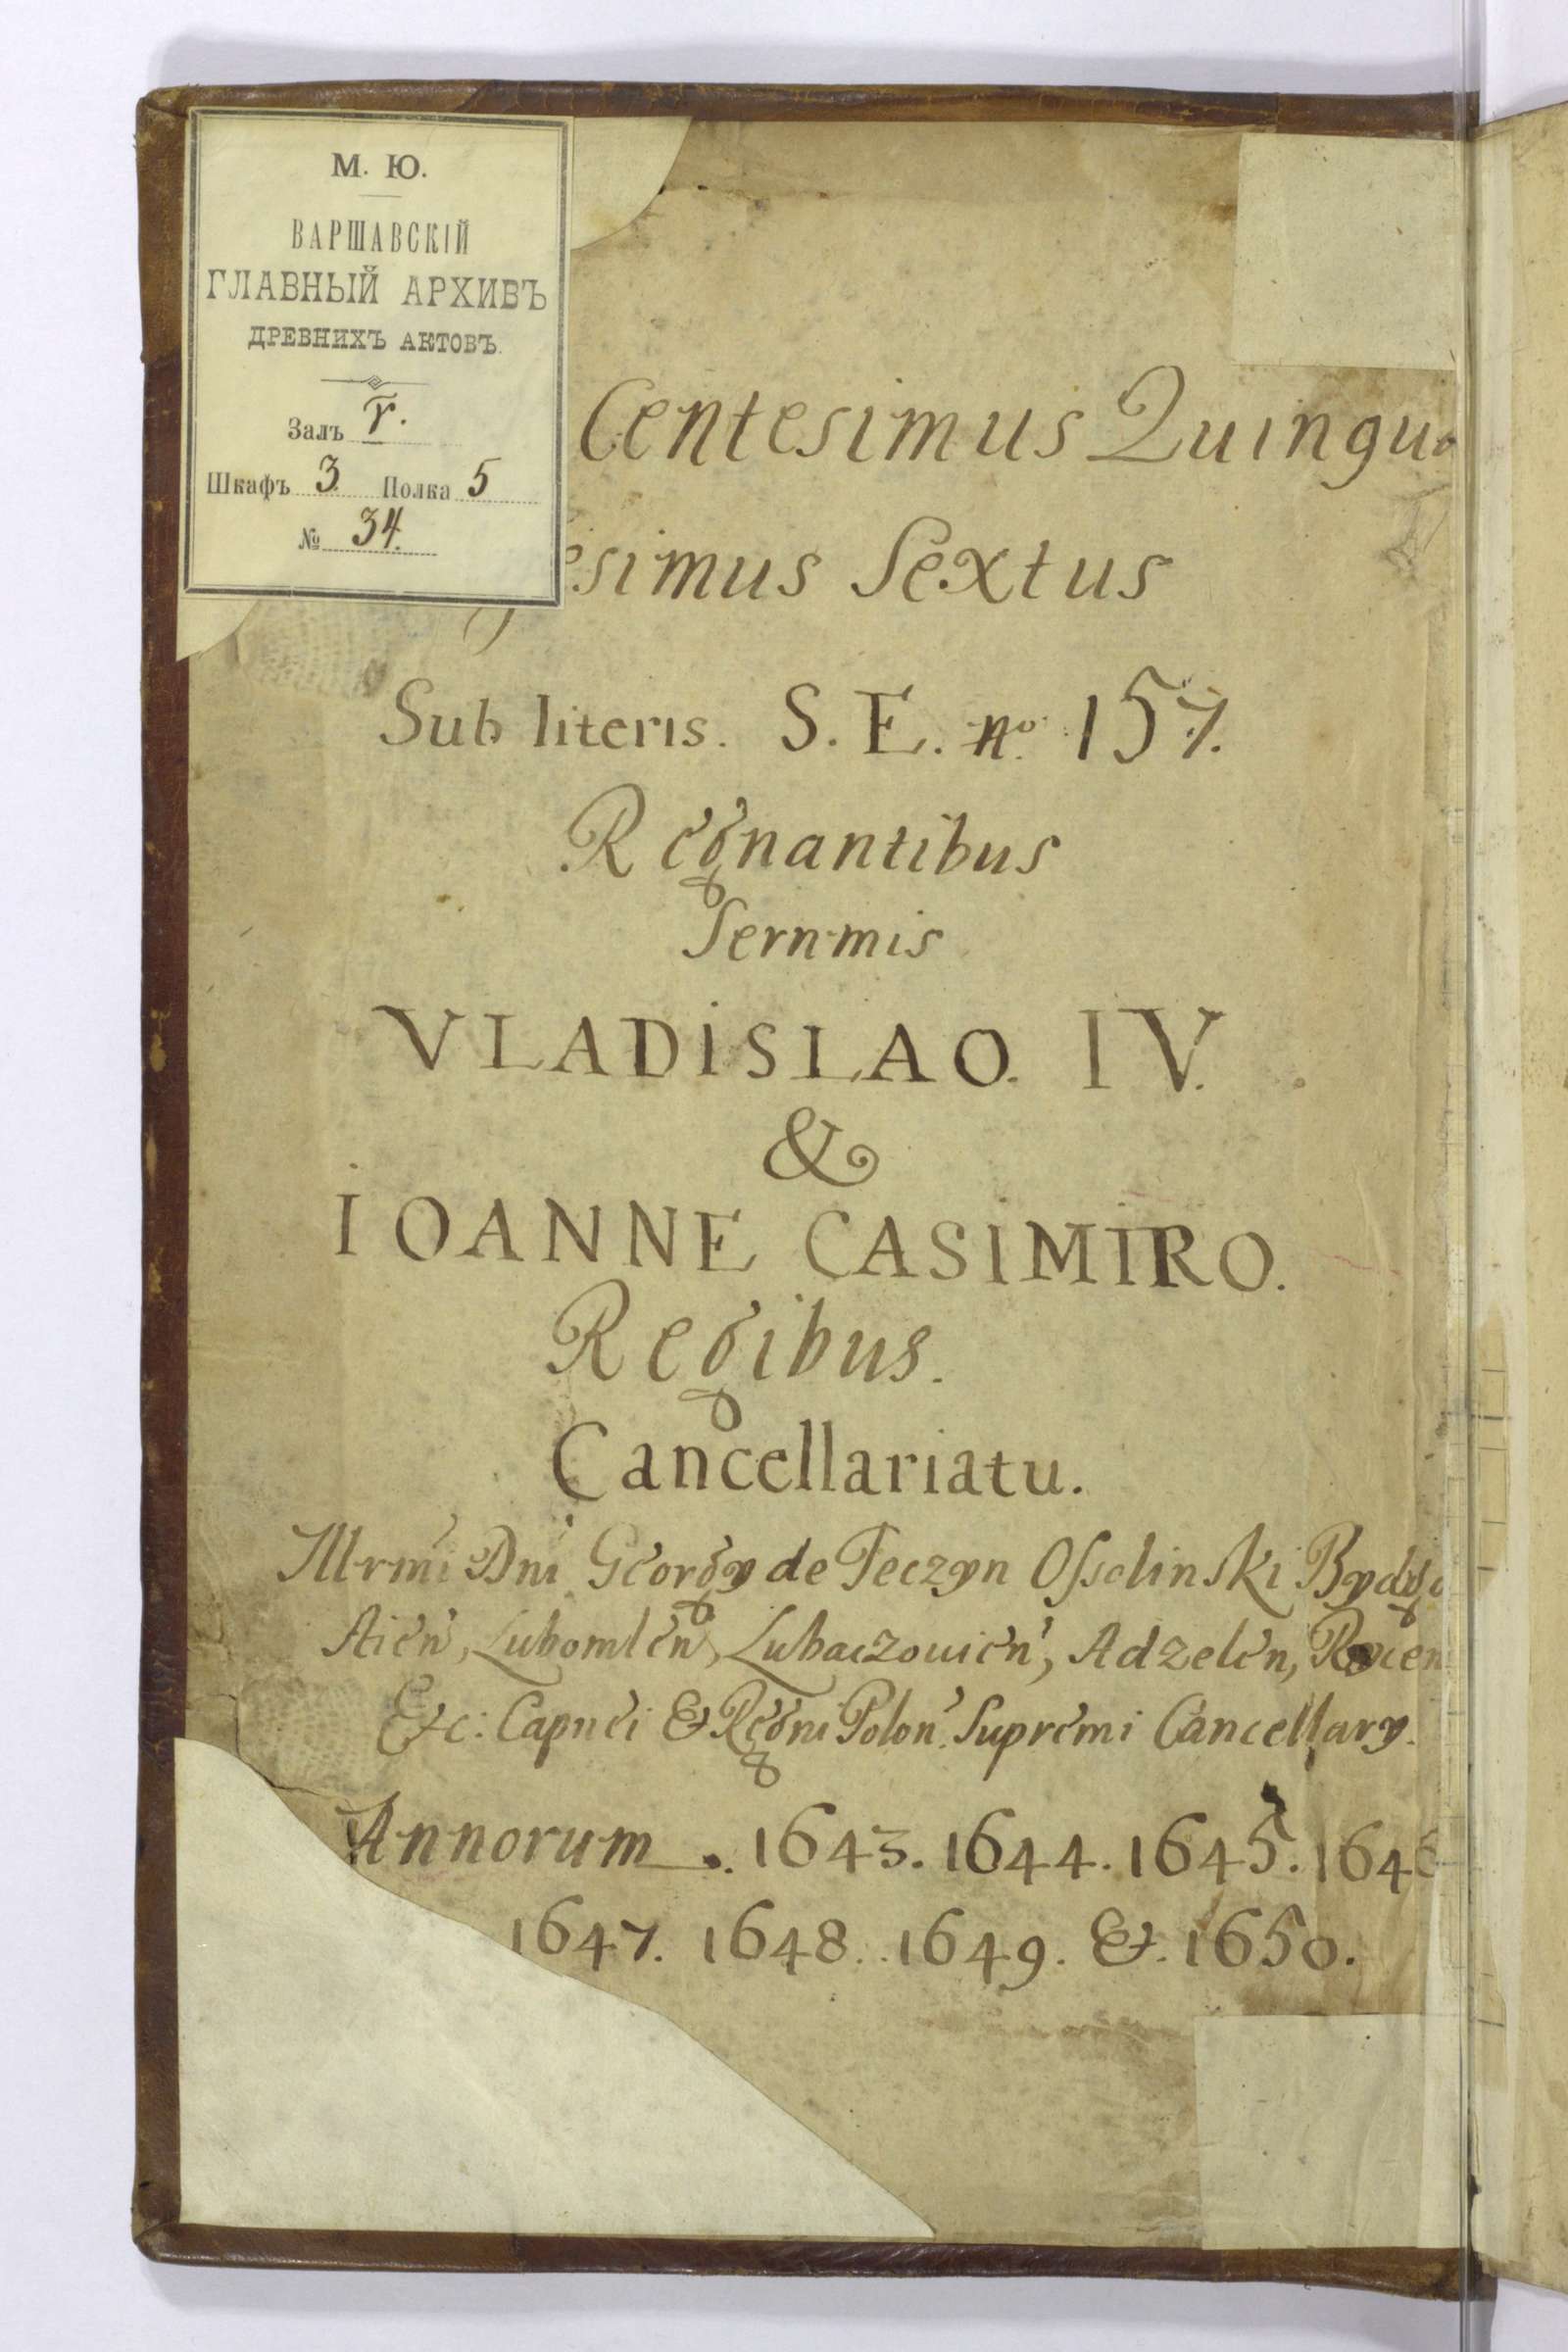 М. Ю.
ВАРШАВСКІЙ
ГЛАВНЫЙ АРХИВЪ
ДРЕВНИХЪ АКТОВЪ.
Залъ
Шкафъ 3. Полка 5
№ 34.
Centesimus Quinqua
esimus Sextus
Sub literis. S. E. no. 157.
Regnantibus
Sernmis
VLADiSLAO. IV.
&
IOANNE CASiMiRO.
Regibus.
Cancellariatu.
Illrmi Dni Georgy de Teczyn Ossolinski Bydgo
stien, Lubomlen, Lubaczovien, Adzelen,
Etc: Capnei & Regni Polon. Supremi Cancellary.
Annorum. 1643. 1644. 1645. 1646
1647. 1648. 1649. &. 1650.